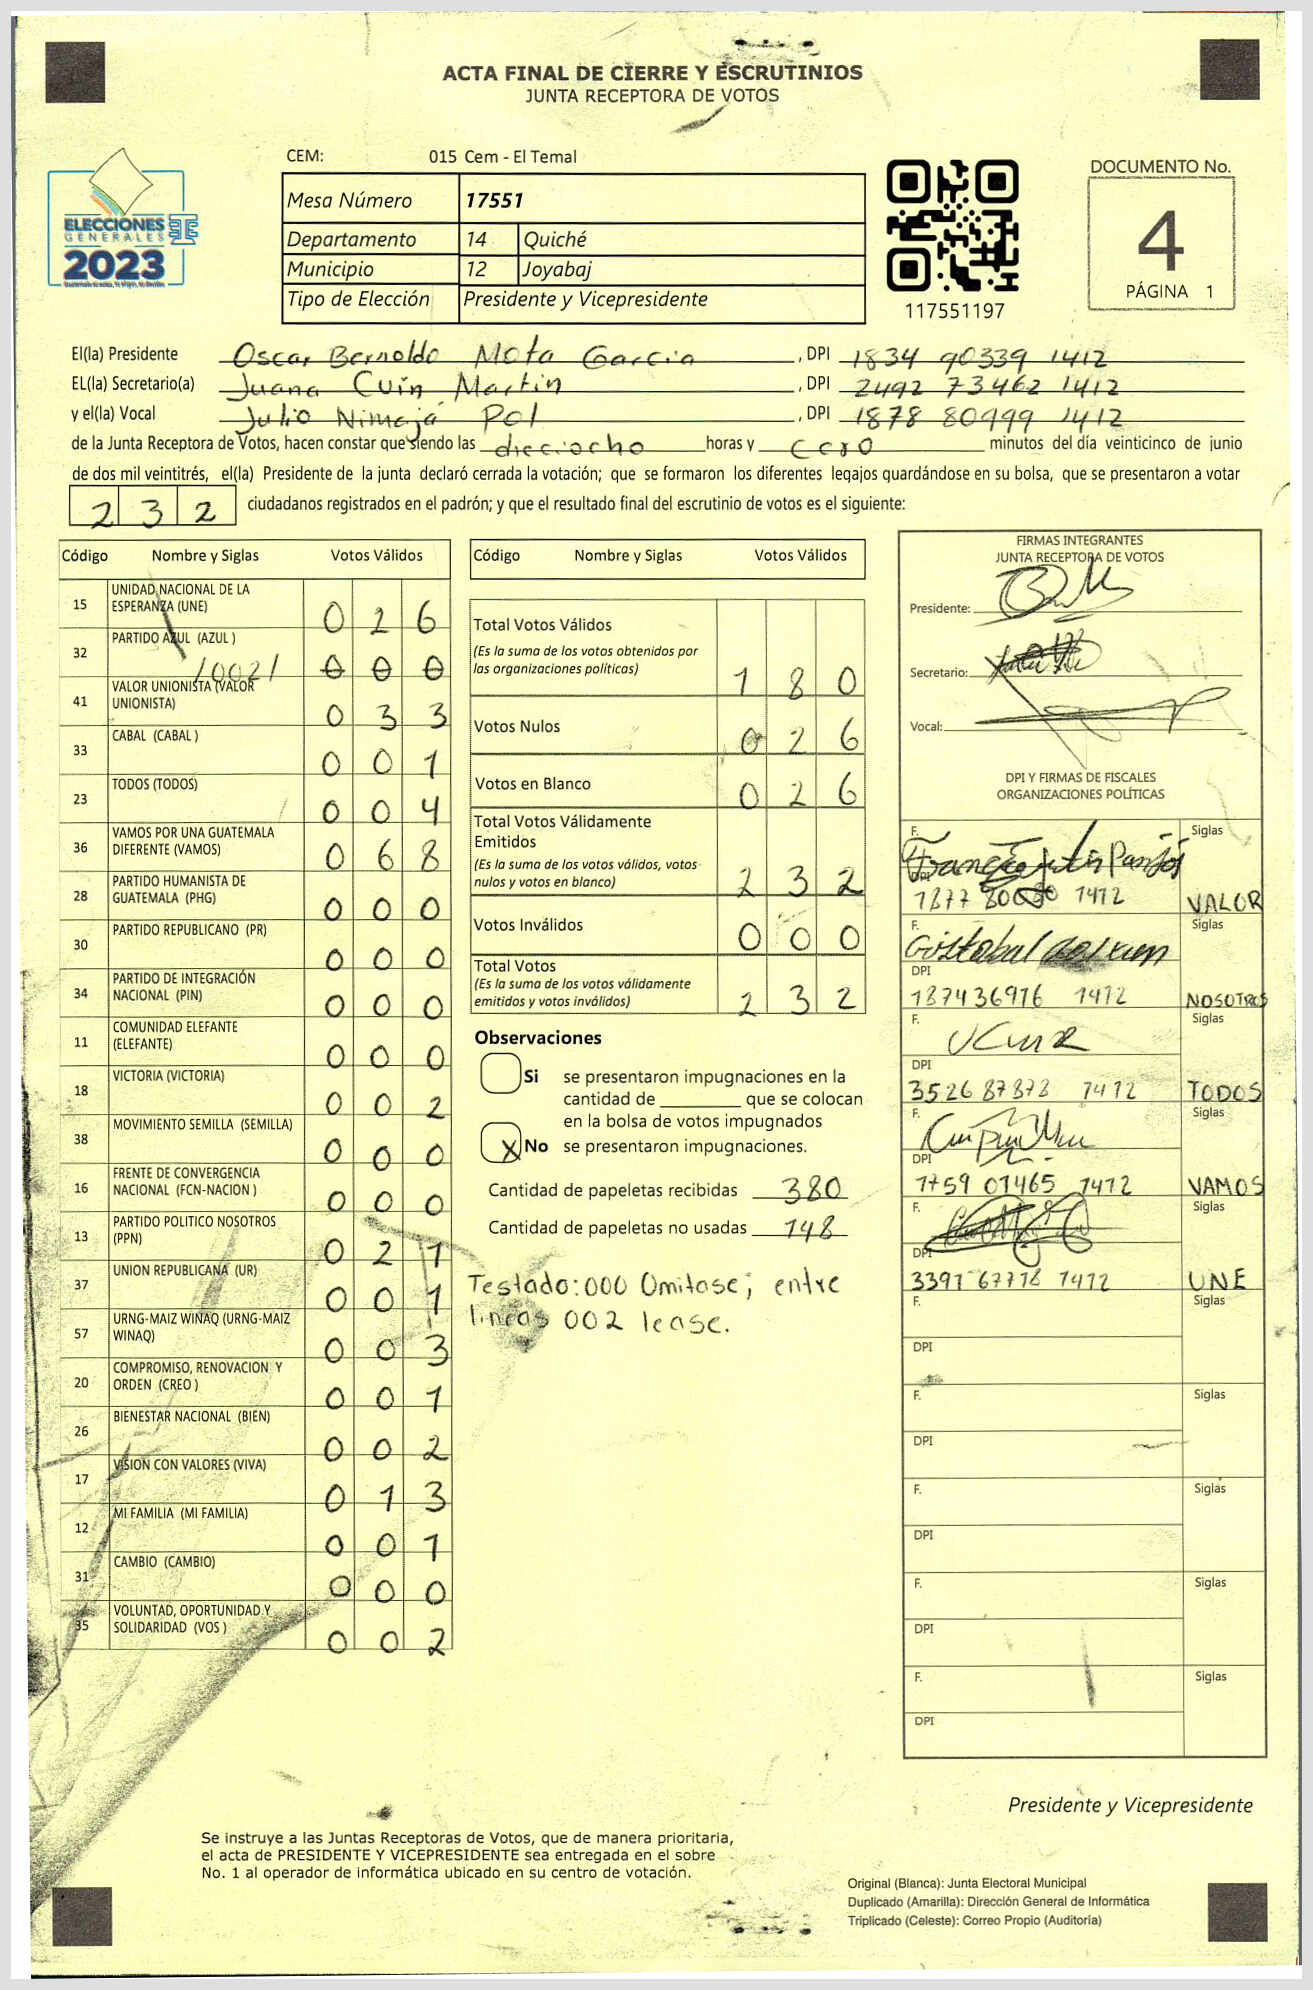 ACTA FINAL DE CIERRE Y ESCRUTINIOS
JUNTA RECEPTORA DE VOTOS
CEM: 015 Cem - El Temal
ELECCIONES
GENERALES
2023
Mesa Número 17551
Departamento 14 Quiché
Municipio 12 Joyabaj
Tipo de Elección Presidente y Vicepresidente
117551197
DOCUMENTO No.
4
PÁGINA 1
El(la) Presidente Oscar Bernoldo Mota Garcia, DPI 1834 90339 1412
EL(la) Secretario(a) Juana Cuin Martin, DPI 2492 73462 1412
y el(la) Vocal Julio Nimajá Pol, DPI 1878 80999 1412
de la Junta Receptora de Votos, hacen constar que siendo las dieciocho horas y cero minutos del día veinticinco de junio
de dos mil veintitrés, el(la) Presidente de la junta declaró cerrada la votación; que se formaron los diferentes legajos guardándose en su bolsa, que se presentaron a votar
2 3 2 ciudadanos registrados en el padrón; y que el resultado final del escrutinio de votos es el siguiente:
Código Nombre y Siglas Votos Válidos
15 UNIDAD NACIONAL DE LA ESPERANZA (UNE) 0 2 6
32 PARTIDO AZUL (AZUL ) 0 0 0
41 VALOR UNIONISTA (VALOR UNIONISTA) 0 3 3
33 CABAL (CABAL ) 0 0 1
23 TODOS (TODOS) 0 0 4
36 VAMOS POR UNA GUATEMALA DIFERENTE (VAMOS) 0 6 8
28 PARTIDO HUMANISTA DE GUATEMALA (PHG) 0 0 0
30 PARTIDO REPUBLICANO (PR) 0 0 0
34 PARTIDO DE INTEGRACIÓN NACIONAL (PIN) 0 0 0
11 COMUNIDAD ELEFANTE (ELEFANTE) 0 0 0
18 VICTORIA (VICTORIA) 0 0 2
38 MOVIMIENTO SEMILLA (SEMILLA) 0 0 0
16 FRENTE DE CONVERGENCIA NACIONAL (FCN-NACION ) 0 0 0
13 PARTIDO POLITICO NOSOTROS (PPN) 0 2 1
37 UNION REPUBLICANA (UR) 0 0 1
57 URNG-MAIZ WINAQ (URNG-MAIZ WINAQ) 0 0 3
20 COMPROMISO, RENOVACION Y ORDEN (CREO ) 0 0 1
26 BIENESTAR NACIONAL (BIEN) 0 0 2
17 VISION CON VALORES (VIVA) 0 1 3
12 MI FAMILIA (MI FAMILIA) 0 0 1
31 CAMBIO (CAMBIO) 0 0 0
35 VOLUNTAD, OPORTUNIDAD Y SOLIDARIDAD (VOS ) 0 0 2
Código Nombre y Siglas Votos Válidos
Total Votos Válidos
(Es la suma de los votos obtenidos por
las organizaciones políticas) 1 8 0
Votos Nulos 0 2 6
Votos en Blanco 0 2 6
Total Votos Válidamente
Emitidos
(Es la suma de los votos válidos, votos
nulos y votos en blanco) 2 3 2
Votos Inválidos 0 0 0
Total Votos
(Es la suma de los votos válidamente
emitidos y votos inválidos) 2 3 2
Observaciones
Si se presentaron impugnaciones en la
cantidad de ________ que se colocan
en la bolsa de votos impugnados
X No se presentaron impugnaciones.
Cantidad de papeletas recibidas 380
Cantidad de papeletas no usadas 148
Testado: 000 Omitase; entre
lineas 002 lease.
FIRMAS INTEGRANTES
JUNTA RECEPTORA DE VOTOS
Presidente:
Secretario:
Vocal:
DPI Y FIRMAS DE FISCALES
ORGANIZACIONES POLÍTICAS
F. Siglas
DPI 1412 VALOR
F. Siglas
DPI 187436916 1412 NOSOTROS
F. Siglas
DPI 3526 87873 1412 TODOS
F. Siglas
DPI 1759 01465 1412 VAMOS
F. Siglas
DPI 3391 67718 1412 UNE
F. Siglas
DPI
F. Siglas
DPI
F. Siglas
DPI
F. Siglas
DPI
F. Siglas
DPI
Presidente y Vicepresidente
Se instruye a las Juntas Receptoras de Votos, que de manera prioritaria,
el acta de PRESIDENTE Y VICEPRESIDENTE sea entregada en el sobre
No. 1 al operador de informática ubicado en su centro de votación.
Original (Blanca): Junta Electoral Municipal
Duplicado (Amarilla): Dirección General de Informática
Triplicado (Celeste): Correo Propio (Auditoría)